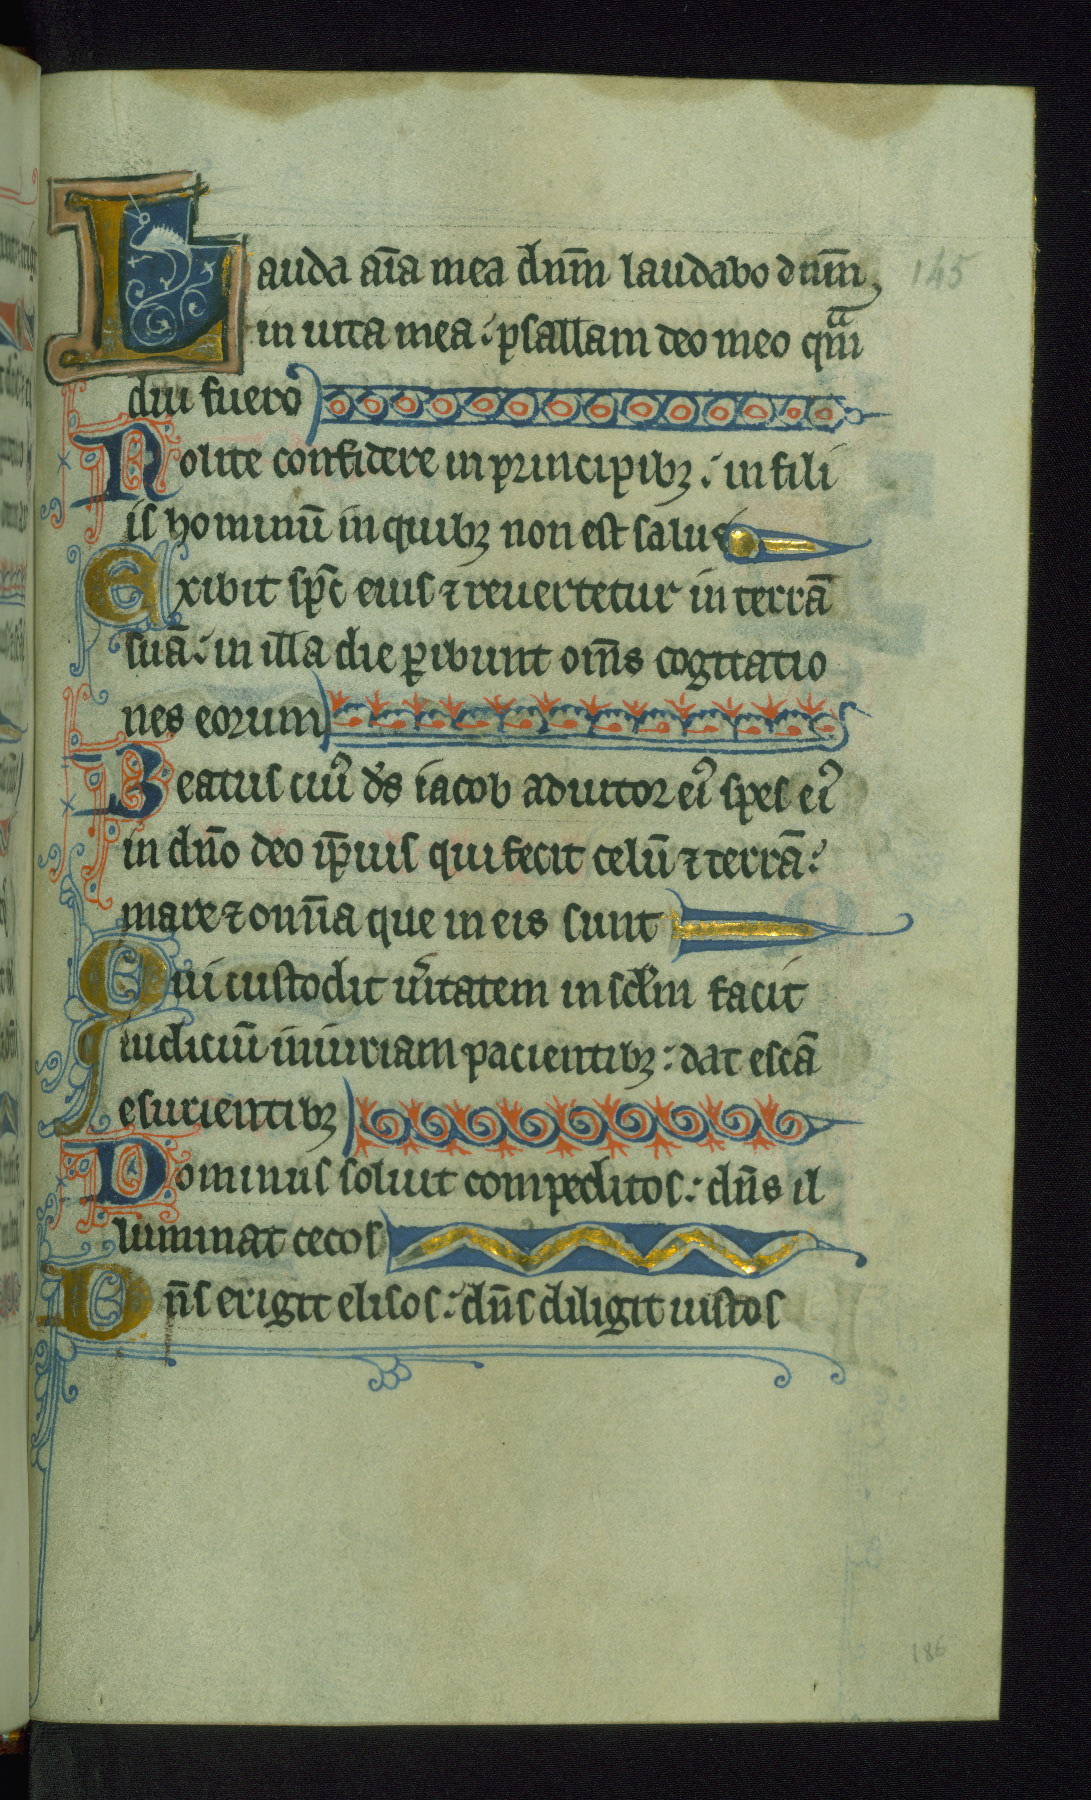 Lauda aīa mea dnm̄ laudabo dnm̄ 145
in uita mea : psallam deo meo qᵃm
diu fuero
Nolite confidere in principibꝫ : in fili
is hominū in quibꝫ non est salus
Exibit spc̄ eius ⁊ reuertetur in terrā
suā : in illa die ꝑibunt om̄s cogitatio
nes eorum
Beatus cuiꝰ ds̄ iacob adiutor eiꝰ spes eiꝰ
in dn̄o deo ip̄ius qui fecit celū ⁊ terrā :
mare ⁊ omīa que in eis sunt
Qui custodit ūitatem in sclm̄ facit
iudiciū iniuriam pacientibꝫ : dat escā
esurientibꝫ
Dominus soluit compeditos : dn̄s il
luminat cecos
Dn̄s erigit elisos : dn̄s diligit iustos
186